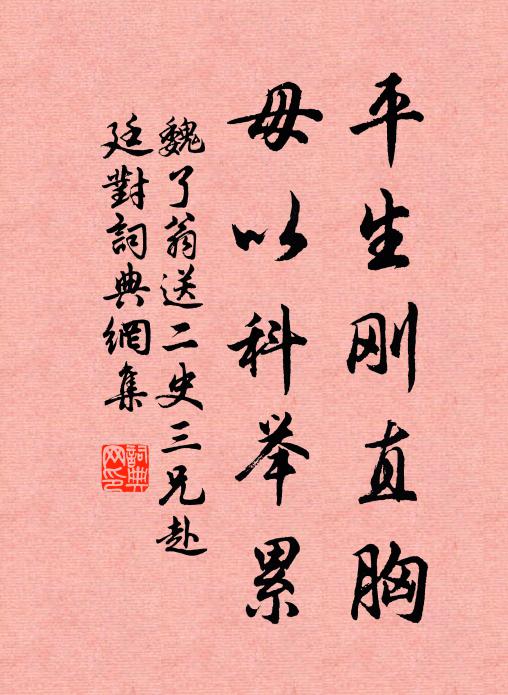 平生刚直胸
毋以科举累
魏了翁送二史三兄赴
廷對詞典網集
詞典
网印